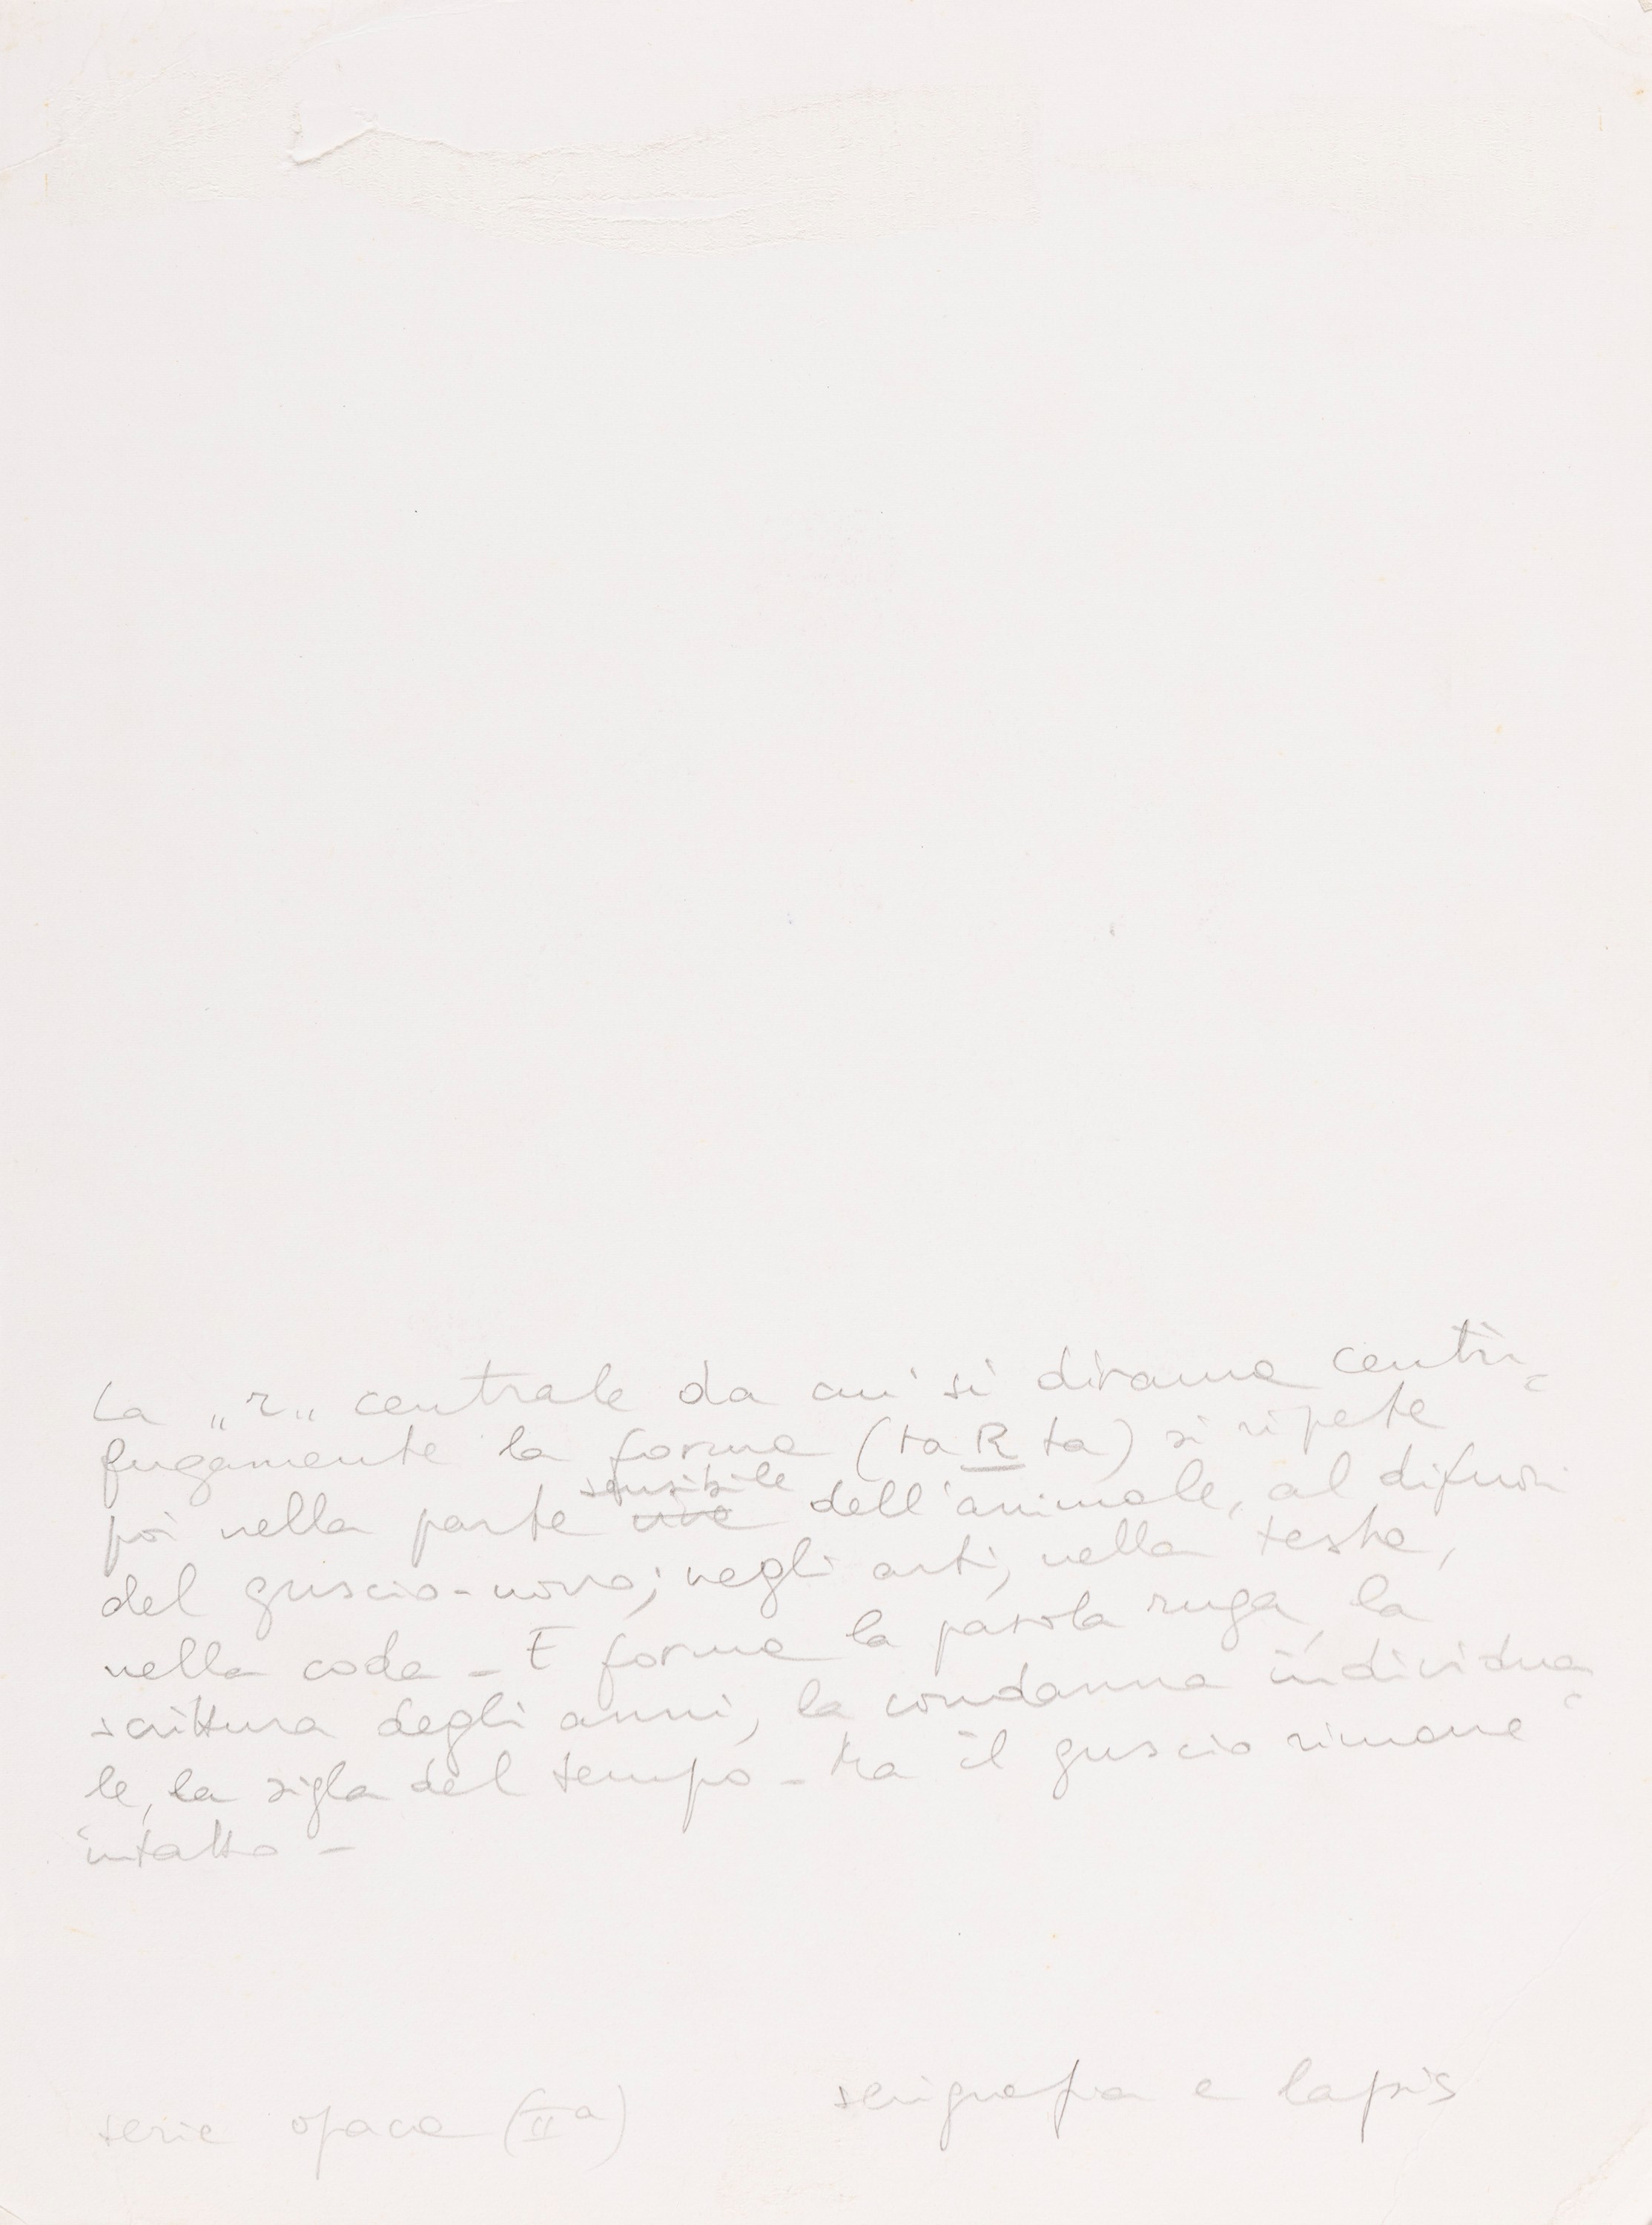 La „r„ centrale da cui si dirama centri=
fugamente la forma (ta R ta) si ripete
sensibile
poi nella parte viva dell'animale, al difuori
del guscio-uovo; negli arti, nella testa,
nella coda - E forma la parola ruga, la
scrittura degli anni, la condanna individua=
le, la sigla del tempo - Ma il guscio rimane
intatto -
serigrafia e lapis
serie opaca (IIa)